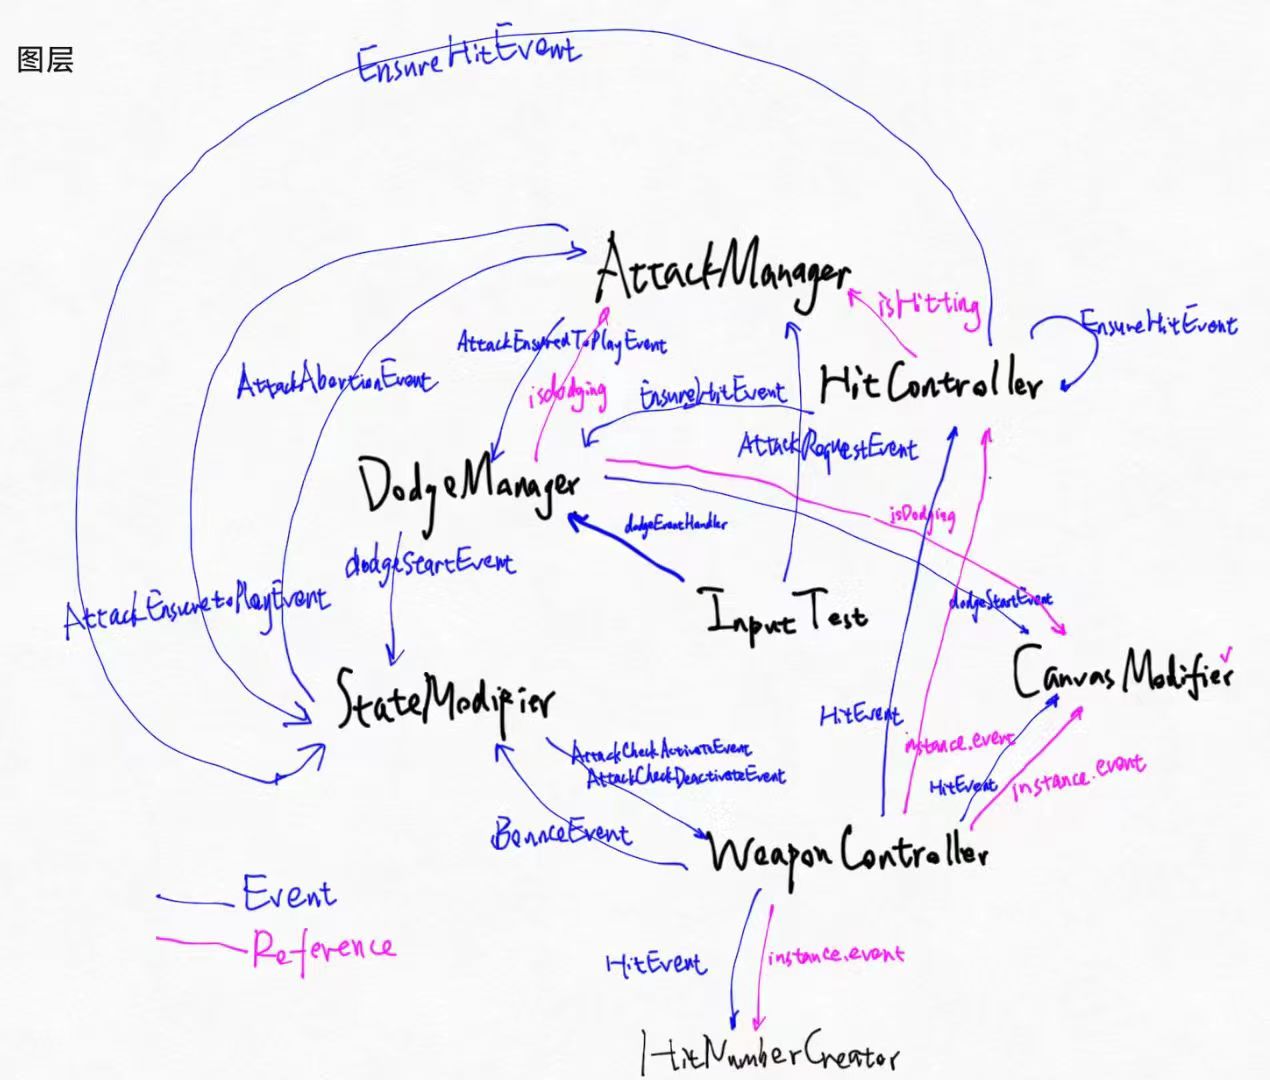 图层
EnsureHitEvent
AttackManager
isHitting
EnsureHitEvent
AttackEnsuredToPlayEvent
AttackAbortionEvent
isdodging
EnsureHitEvent
HitController
AttackRequestEvent
DodgeManager
isDodging
dodgeEventHandler
dodgeStartEvent
AttackEnsuretoPlayEvent
InputTest
dodgeStartEvent
CanvasModifier
StateModifier
HitEvent
instance.event
AttackCheckActivateEvent
AttackCheckDeactivateEvent
HitEvent
instance.event
BounceEvent
WeaponController
Event
Reference
HitEvent
instance.event
HitNumberCreator